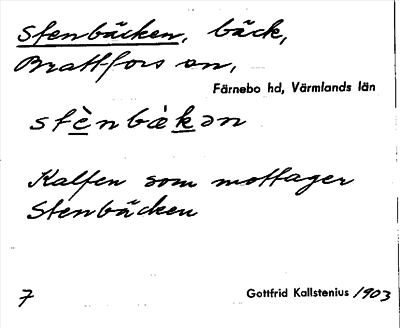 Stenbäcken, bäck,
Brattfors sn,
Färnebo hd, Värmlands län
stènbäkən
Kalfen som mottager
Stenbäcken
7
Gottfrid Kallstenius 1903